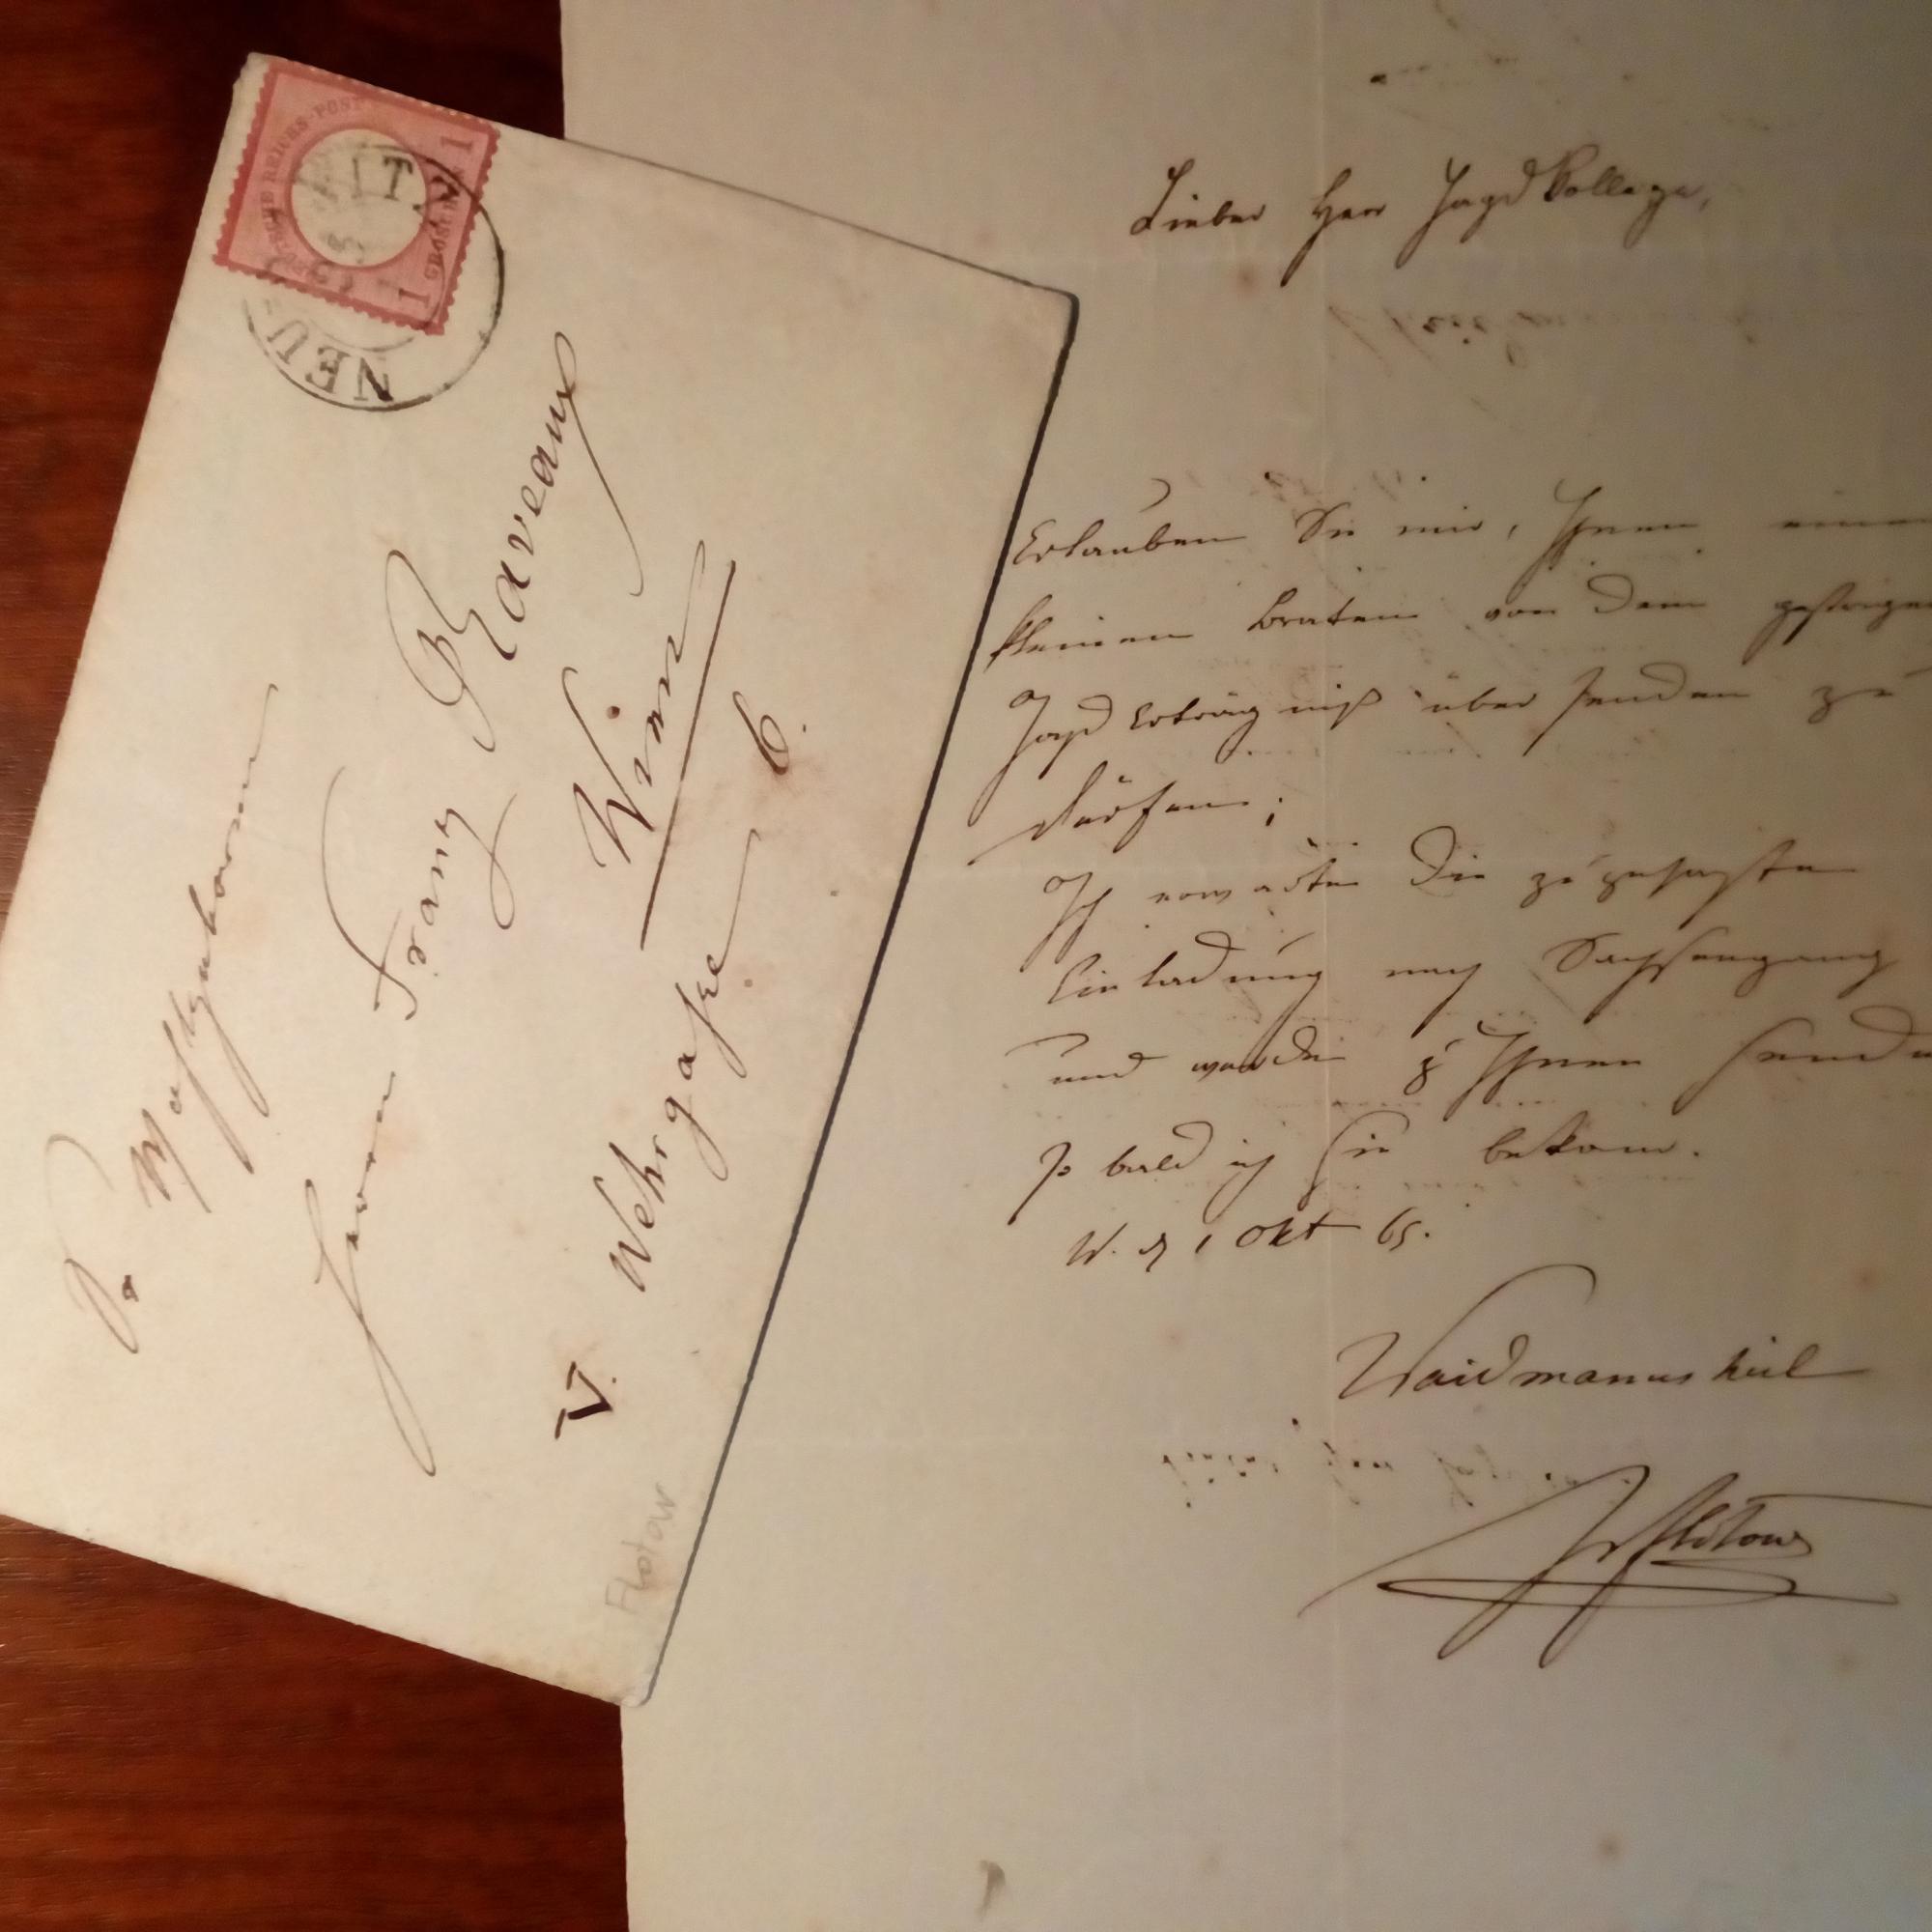 DEUTSCHE REICHS-POST
1 GROSCHEN 1
NEU
Sr. Wohlgeboren
Herrn Franz Raveaux
Wien
V. Wehrgasse 6.
Flotow
Lieber Herr Jagdkollege,
Erlauben Sie mir, Ihnen einen
kleinen Braten von dem gestrigen
Jagderträgniß übersenden zu
dürfen;
Ich erwarte die zugesagte
Einladung nach Sachsengang
und werde Ihnen
so bald ich sie bekom.
W. d 1 Okt 65.
Waidmannsheil
Flotow